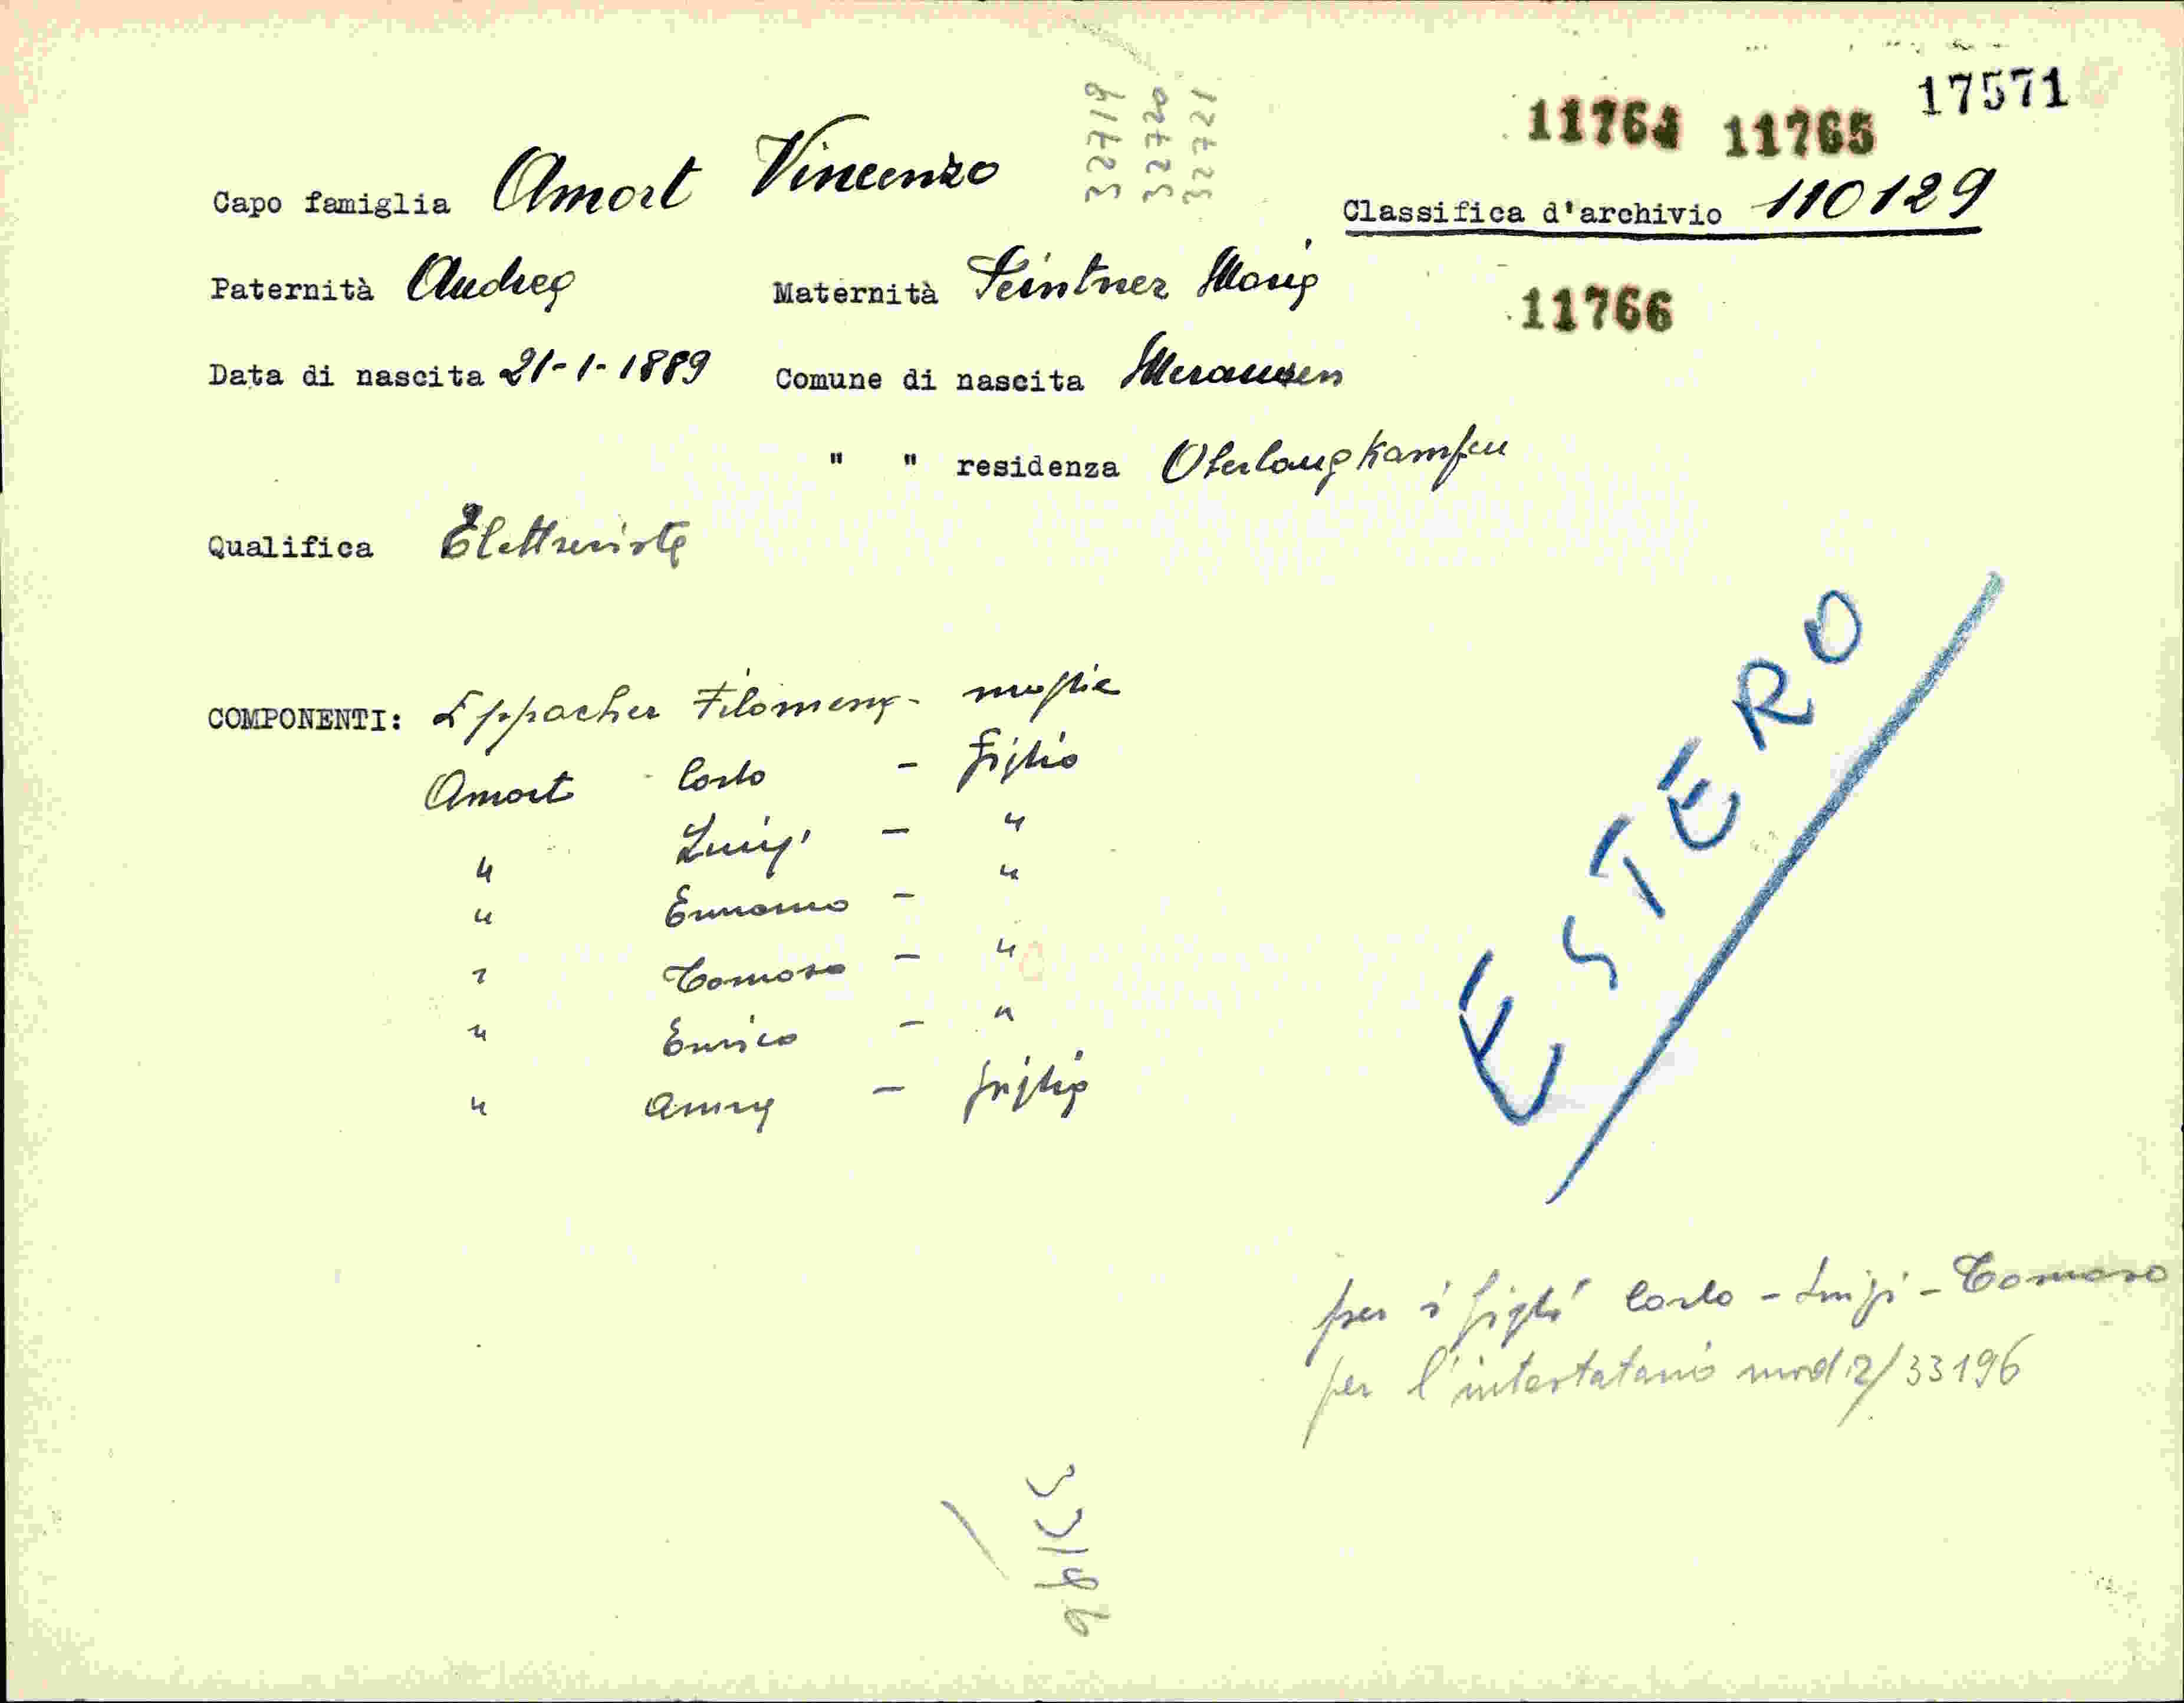 17571
11764 11765
32719
32720
32721
Capo famiglia Amort Vincenzo
Classifica d'archivio 110129
Paternità Andrea Maternità Leintner Maria
11766
Data di nascita 21-1-1889 Comune di nascita Meransen
" " residenza Oberlangkampfen
Qualifica Elettricista
COMPONENTI: Eppacher Filomena - moglie
Amort - Carlo - figlio
" Luigi - "
" Ermanno - "
" Tomaso - "
" Enrico - "
" Anna - figlia
ESTERO
per i figli Carlo - Luigi - Tomaso
per l'intestatario mod 2/33196
33196